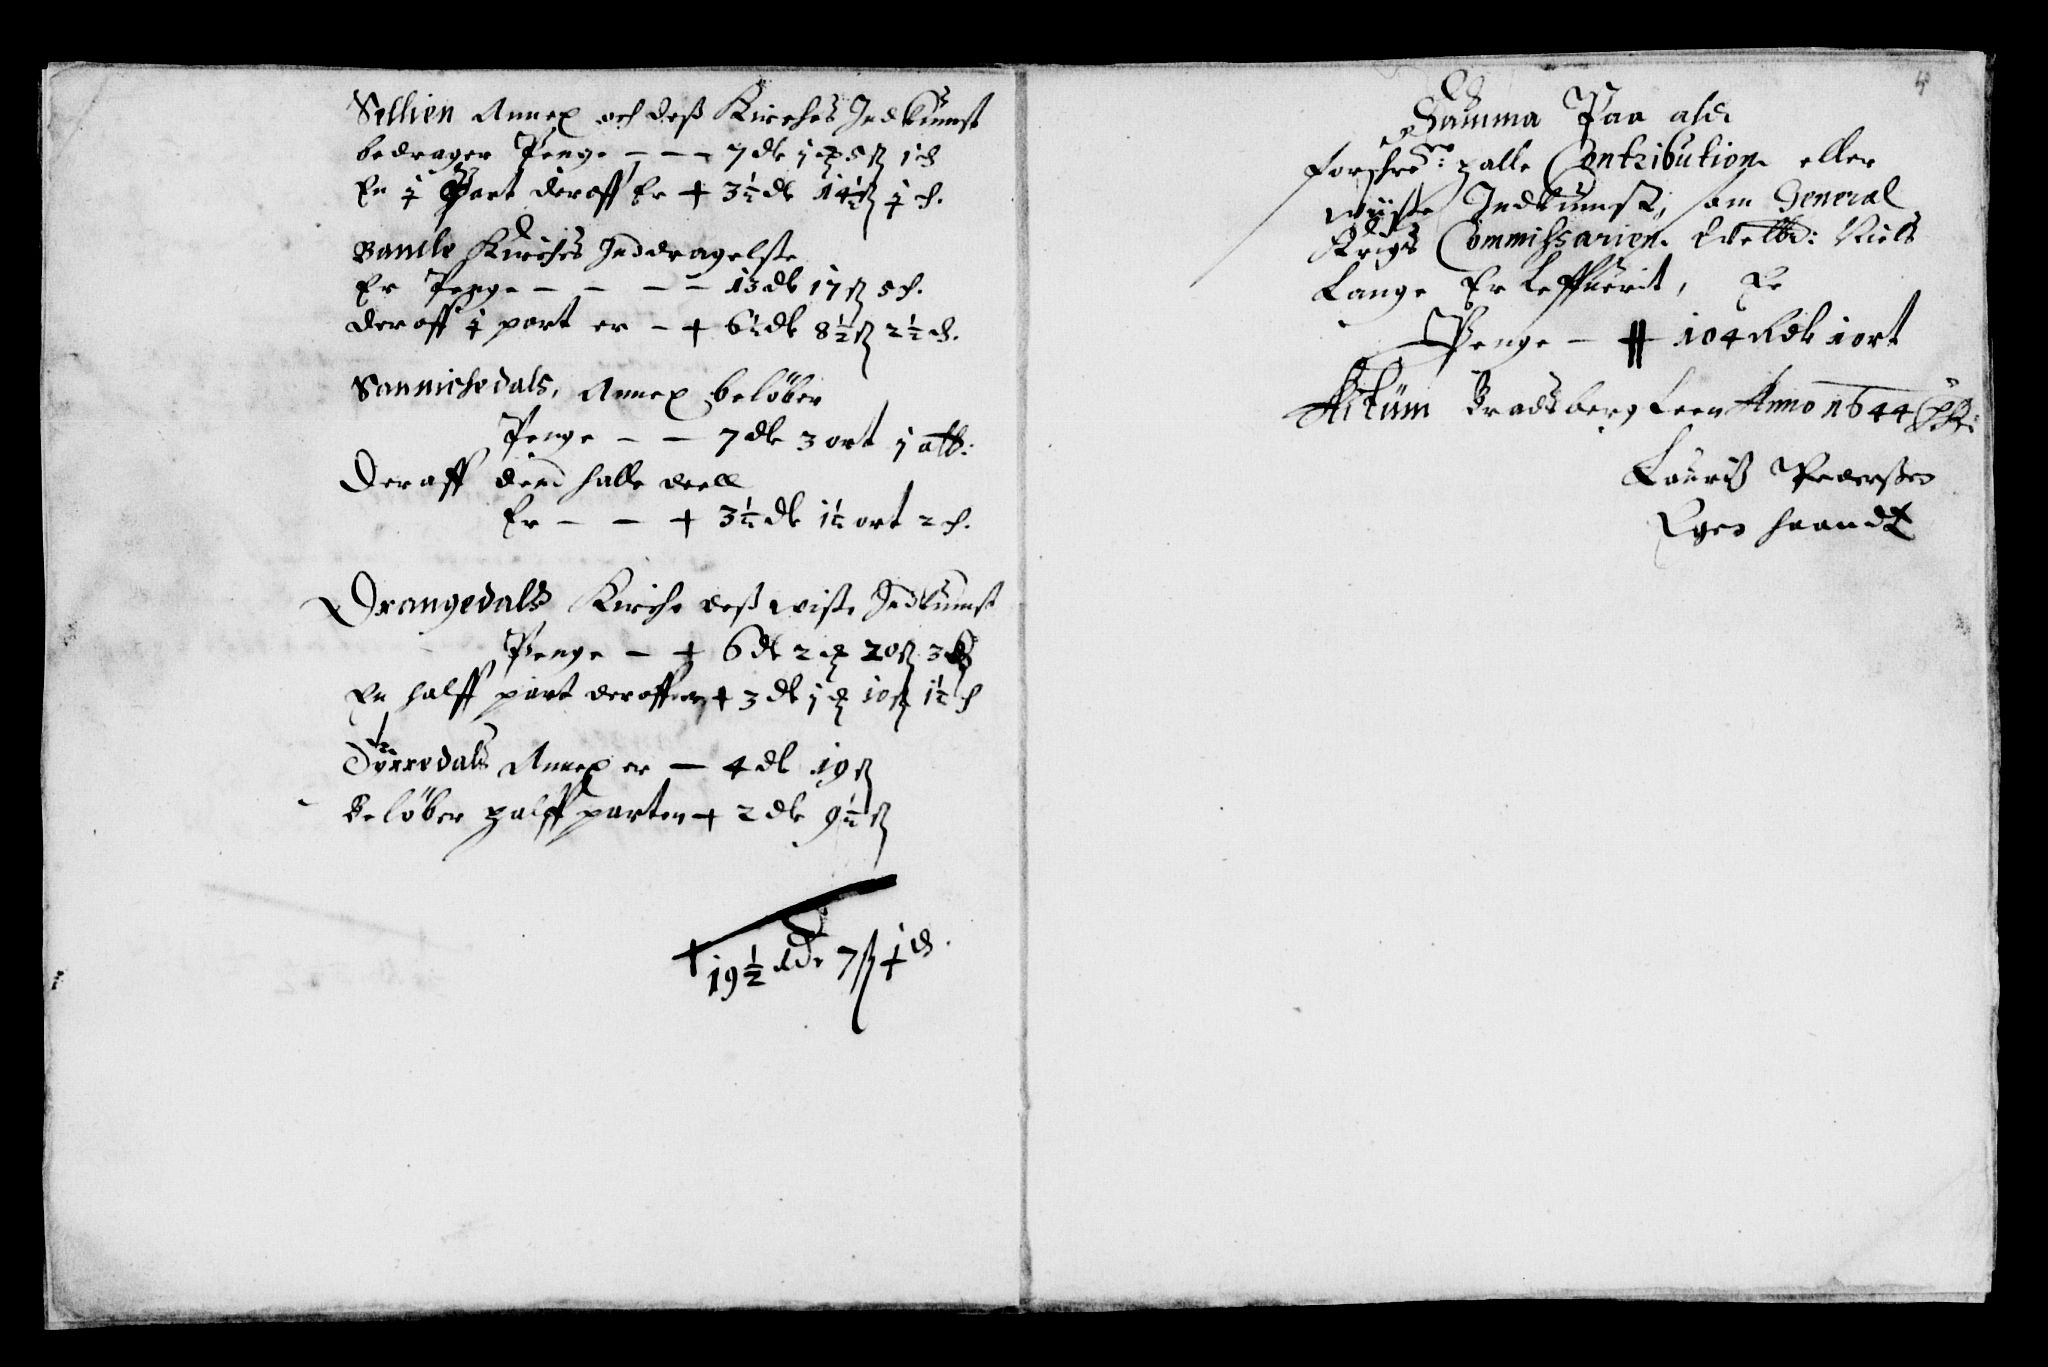 Sillien Annex och deß Kirches Indkumst
bedrager Penge – – – 7 dlr 1 ort 5 ß 1 ₰
En ½ Part deraff Er + 3½ dlr 14½ ß ½ ₰.
Bamle Kirches Inddragelße
Er Penge – – – – 13 dlr 17 ß 5 ₰.
deraff ½ part er – + 6½ dlr 8½ ß 2½ ₰.
Sannichedals, Annex belöber
Penge – – 7 dlr 3 ort 1 alb:
Deraff dend halle deell
Er – – + 3½ dlr 1½ ort 2 ₰.
Drangedals Kirche deß wiße Indkumst
Penge – + 6 dlr 2 ort 20 ß 3 ₰
En halff part deraff er + 3 dlr 1 ort 10 ß 1½ ₰
Törredals Annex er – 4 dlr 19 ß
Belöber halff parten + 2 dlr 9½ ß
+ 19½ dlr 7 ß ½ ₰.
4
Summa Paa alld
forschreffne: halle Contribution eller
wiiße Indkumst, som General
Krigs Commissarien Welb: Niels
Lange Er leffuerit, Er
Penge – ǂ 104 Rdlr 1 ort
Actüm Bradsberg Leen Anno 1644
Lauriß Pederßen
Egen haandt